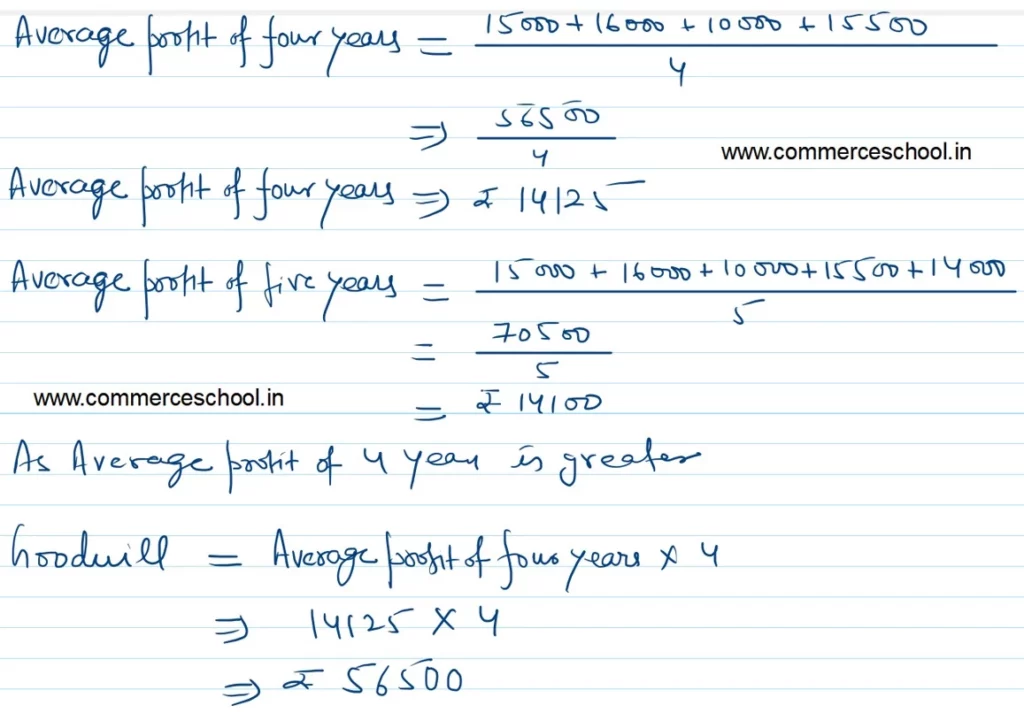 Average profit of four years = 15000 + 16000 + 10000 + 15500
4
⇒ 56500
4
www.commerceschool.in
Average profit of four years ⇒ ₹ 14125
Average profit of five years = 15000 + 16000 + 10000 + 15500 + 14000
5
= 70500
5
www.commerceschool.in
= ₹ 14100
As Average profit of 4 year is greater
Goodwill = Average profit of four years × 4
⇒ 14125 × 4
⇒ ₹ 56500